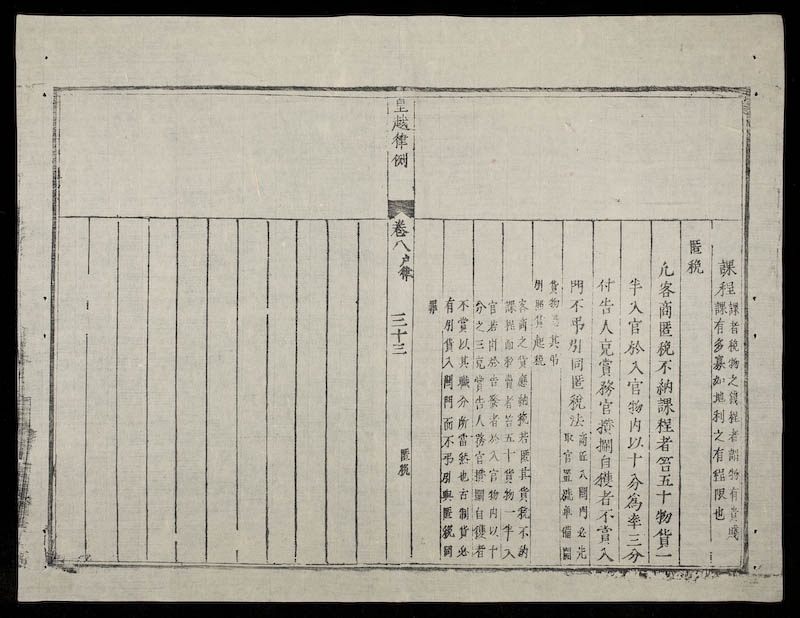 課程
課者稅物之錢程者謂物有貴賤
課有多寡如地利之有程限也
匿稅
凡客商匿稅不納課程者笞五十物貨一
半入官於入官物內以十分為率三分
付告人充賞務官攢攔自獲者不賞入
門不弔引同匿稅法
商匠入關門必先
取官置號單備開
貨物其弔
引照貨起稅
客商之貨應納稅若匿其貨稅不納
課程而私賣者笞五十貨物一半入
官若有於告發者於入官物內以十
分之三充賞告人務官攢攔自獲者
不賞以其職分所當然也古制貨必
有引貨入關門而不弔引與匿稅同
罪
皇越律例
卷八
戶律
三十三
匿稅